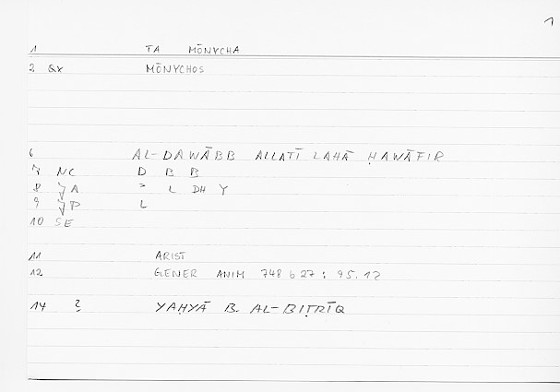 1
1 TA MŌNYCHA
2 QX MŌNYCHOS
6 AL-DAWĀBB ALLATĪ LAHĀ ḤAWĀFIR
7 NC D B B
8 JA ʾ L DH Y
9 JP L
10 SE
11 ARIST
12 GENER ANIM 748 b 27 : 95.12
14 ? YAḤYĀ B. AL-BIṬRĪQ